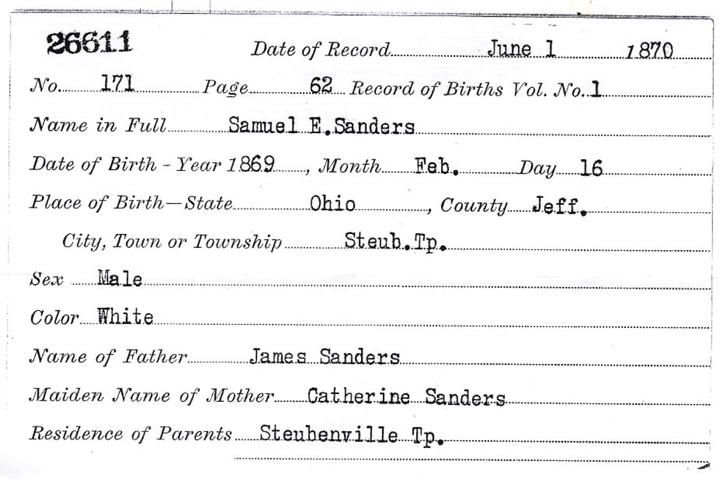 26611 Date of Record June 1 1870
No. 171 Page 62 Record of Births Vol. No. 1
Name in Full Samuel E.Sanders
Date of Birth - Year 1869, Month Feb. Day 16
Place of Birth—State Ohio, County Jeff.
City, Town or Township Steub.Tp.
Sex Male
Color White
Name of Father James Sanders
Maiden Name of Mother Catherine Sanders
Residence of Parents Steubenville Tp.